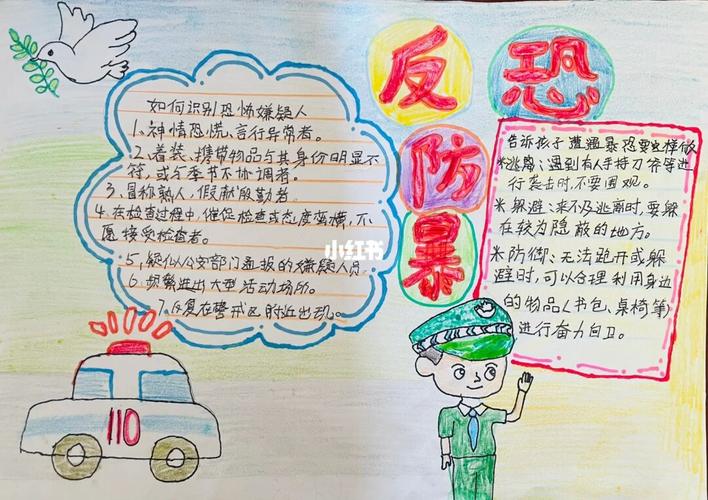 反恐
防
暴
如何识别恐怖嫌疑人
1、神情恐慌、言行异常者。
2、着装、携带物品与其身份明显不
符,或与季节不协调者。
3、冒称熟人、假献殷勤者。
4、在检查过程中,催促检查或态度蛮横,不
愿接受检查者。
5、疑似公安部门通报的嫌疑人员
6、频繁进出大型活动场所。
7、反复在警戒区附近出现。
告诉孩子遭遇暴恐要这样做
*逃离:遇到有人手持刀斧等进
行袭击时,不要围观。
*躲避:来不及逃离时,要躲
在较为隐蔽的地方。
*防御:无法跑开或躲
避时,可以合理利用身边
的物品(书包、桌椅等)
进行奋力自卫。
小红书
110